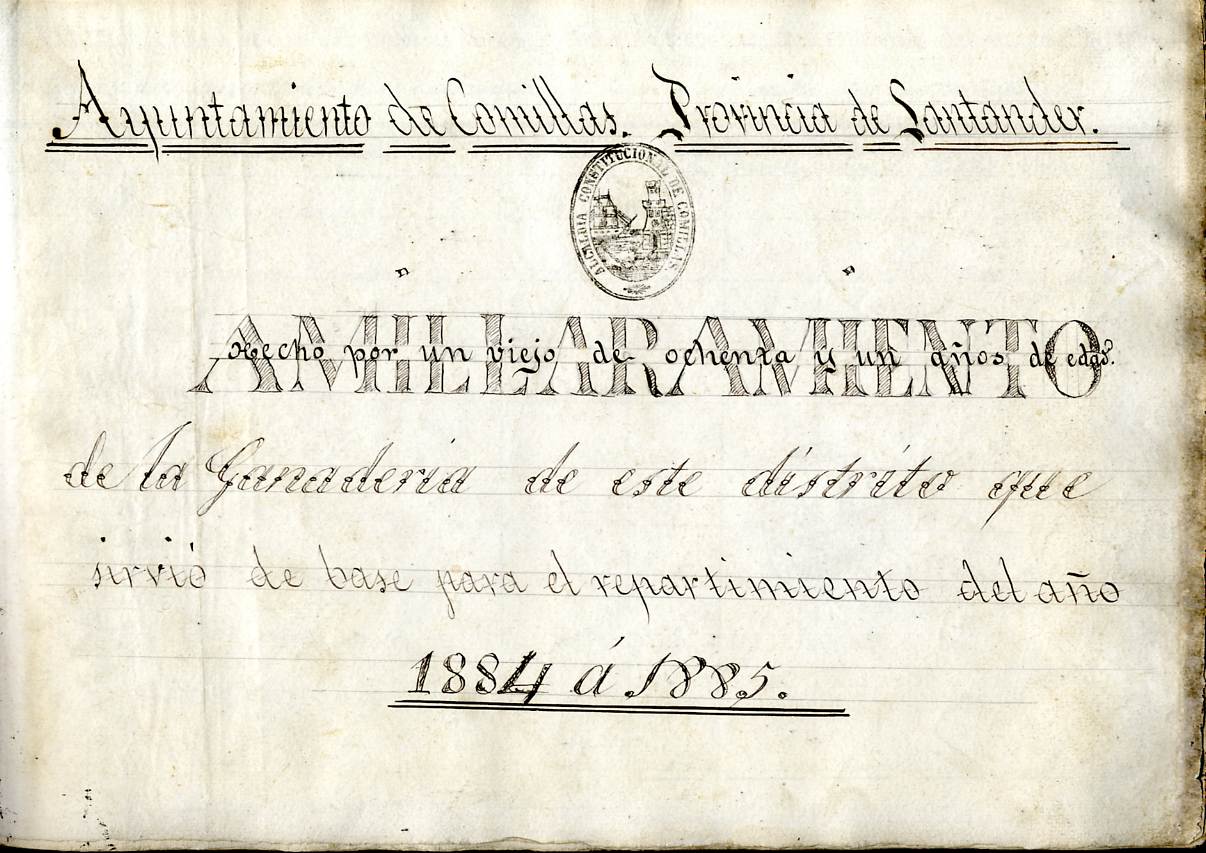 Ayuntamiento de Comillas. Provincia de Santander.
ALCALDIA CONSTITUCIONAL DE COMILLAS.
AMILLARAMIENTO
Hecho por un viejo de ochenta y un años de edad.
de la Ganaderia de este distrito que
sirvió de base para el repartimiento del año
1884 á 1885.